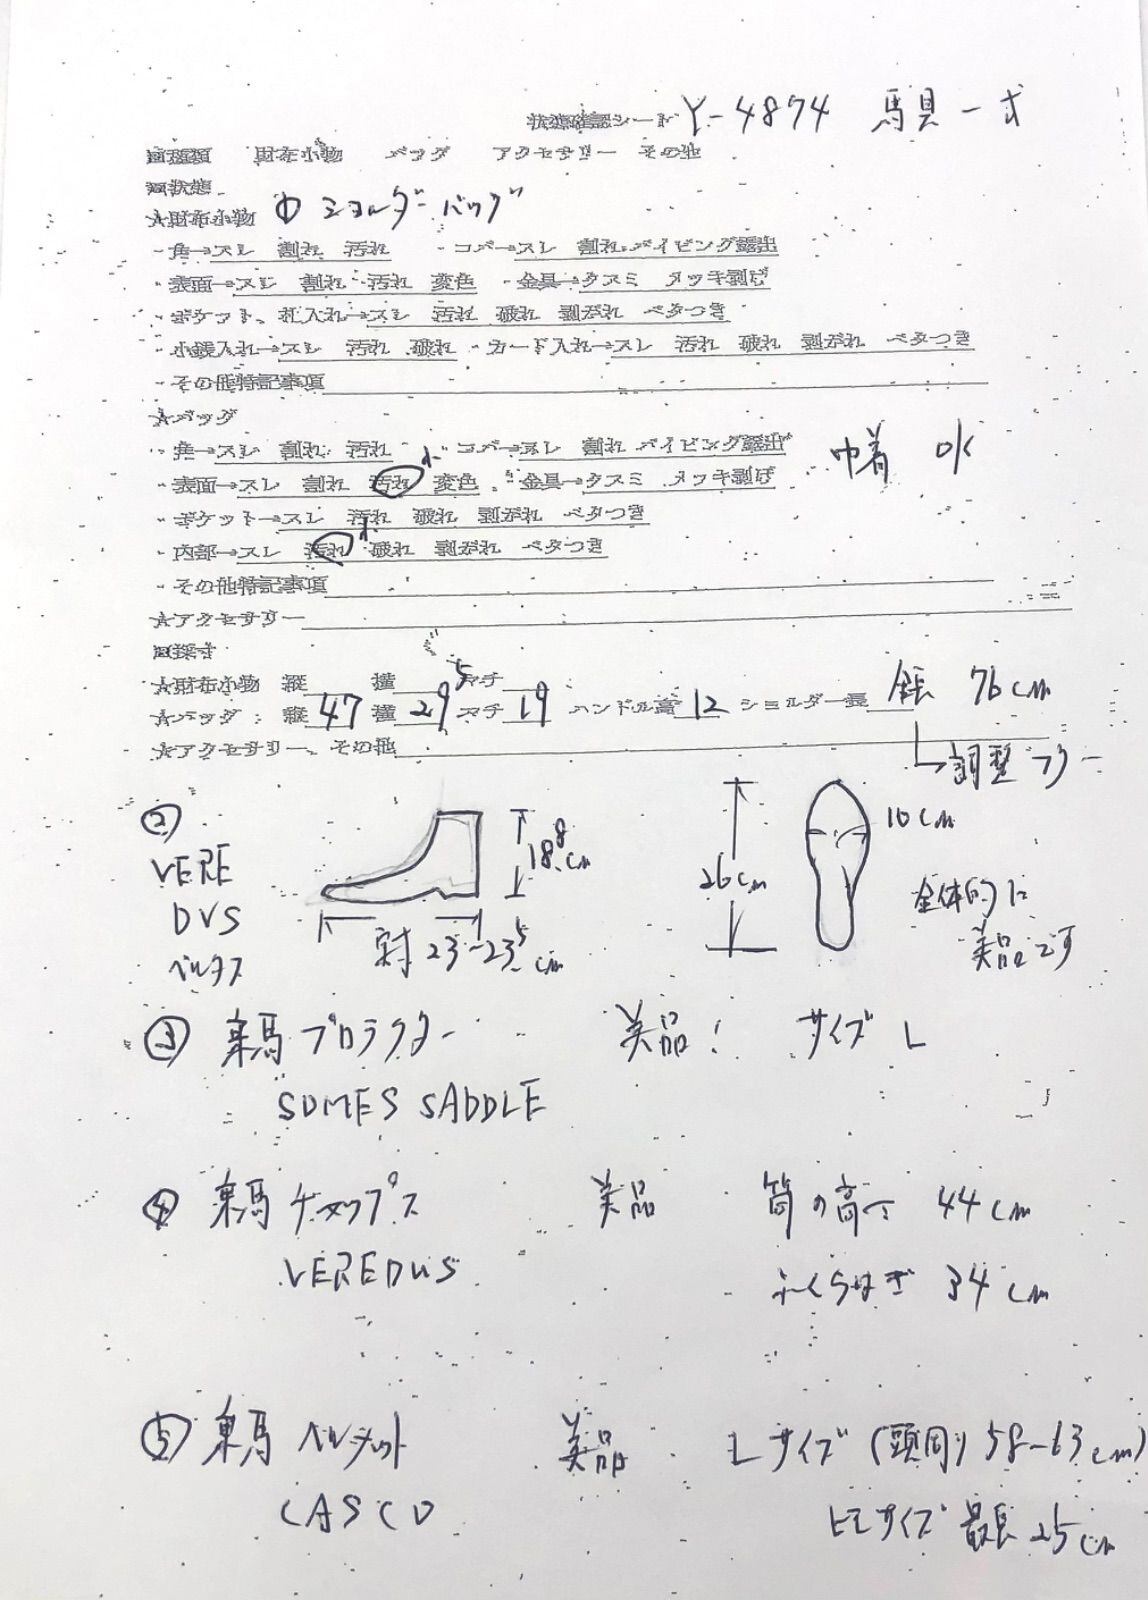 状態確認シート Y-4874 馬具一式
□種類 財布小物 バッグ アクセサリー その他
□状態
★財布小物 ① ショルダーバッグ
・角→スレ 割れ 汚れ ・コバ→スレ 割れ パイピング露出
・表面→スレ 割れ 汚れ 変色 ・金具→クスミ メッキ剥げ
・ポケット、札入れ→スレ 汚れ 破れ 剥がれ ベタつき
・小銭入れ→スレ 汚れ 破れ ・カード入れ→スレ 汚れ 破れ 剥がれ ベタつき
・その他特記事項
★バッグ
・角→スレ 割れ 汚れ ・コバ→スレ 割れ パイピング露出 巾着
・表面→スレ 割れ 汚れ 小 変色 ・金具→クスミ メッキ剥げ
・ポケット→スレ 汚れ 破れ 剥がれ ベタつき
・内部→スレ 汚れ 小 破れ 剥がれ ベタつき
・その他特記事項
★アクセサリー
□採寸
★財布小物 縦 横 マチ
★バッグ:縦 47 横 29 5 マチ 19 ハンドル高 12 ショルダー長 76cm
★アクセサリー、その他
→調整フリー
② VERE
DVS
ベルタス
18 8 cm
実寸 23~23 5 cm
26cm
10cm
全体的に
美品です
③ 乗馬プロテクター 美品! サイズ L
SOMES SADDLE
④ 乗馬チャップス 美品 筒の高さ 44cm
VEREDUS ふくらはぎ 34cm
⑤ 乗馬ヘルメット 美品 Lサイズ (頭周り 58-63cm)
CASCO 最長 25cm